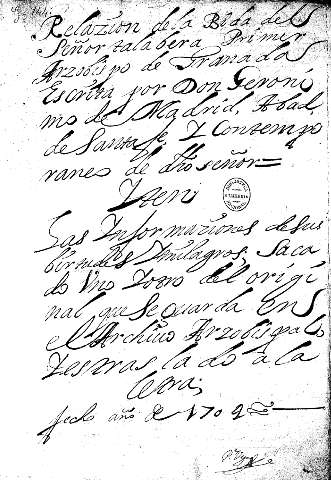 Relazion de la Bida del
Señor talabera Primer
Arzobispo de Granada
Escrita por Don Geroni
mo de Madrid, Abad
de Santa fe, Y Contempo
raneo de dho señor=
Yten
Las Informaziones de sus
birtudes Y milagros, saca
do Uno Y otro del origi
nal que se guarda en
el Archivo Arzobispal
Y es traslado a la
letra;
fecho año de 1702